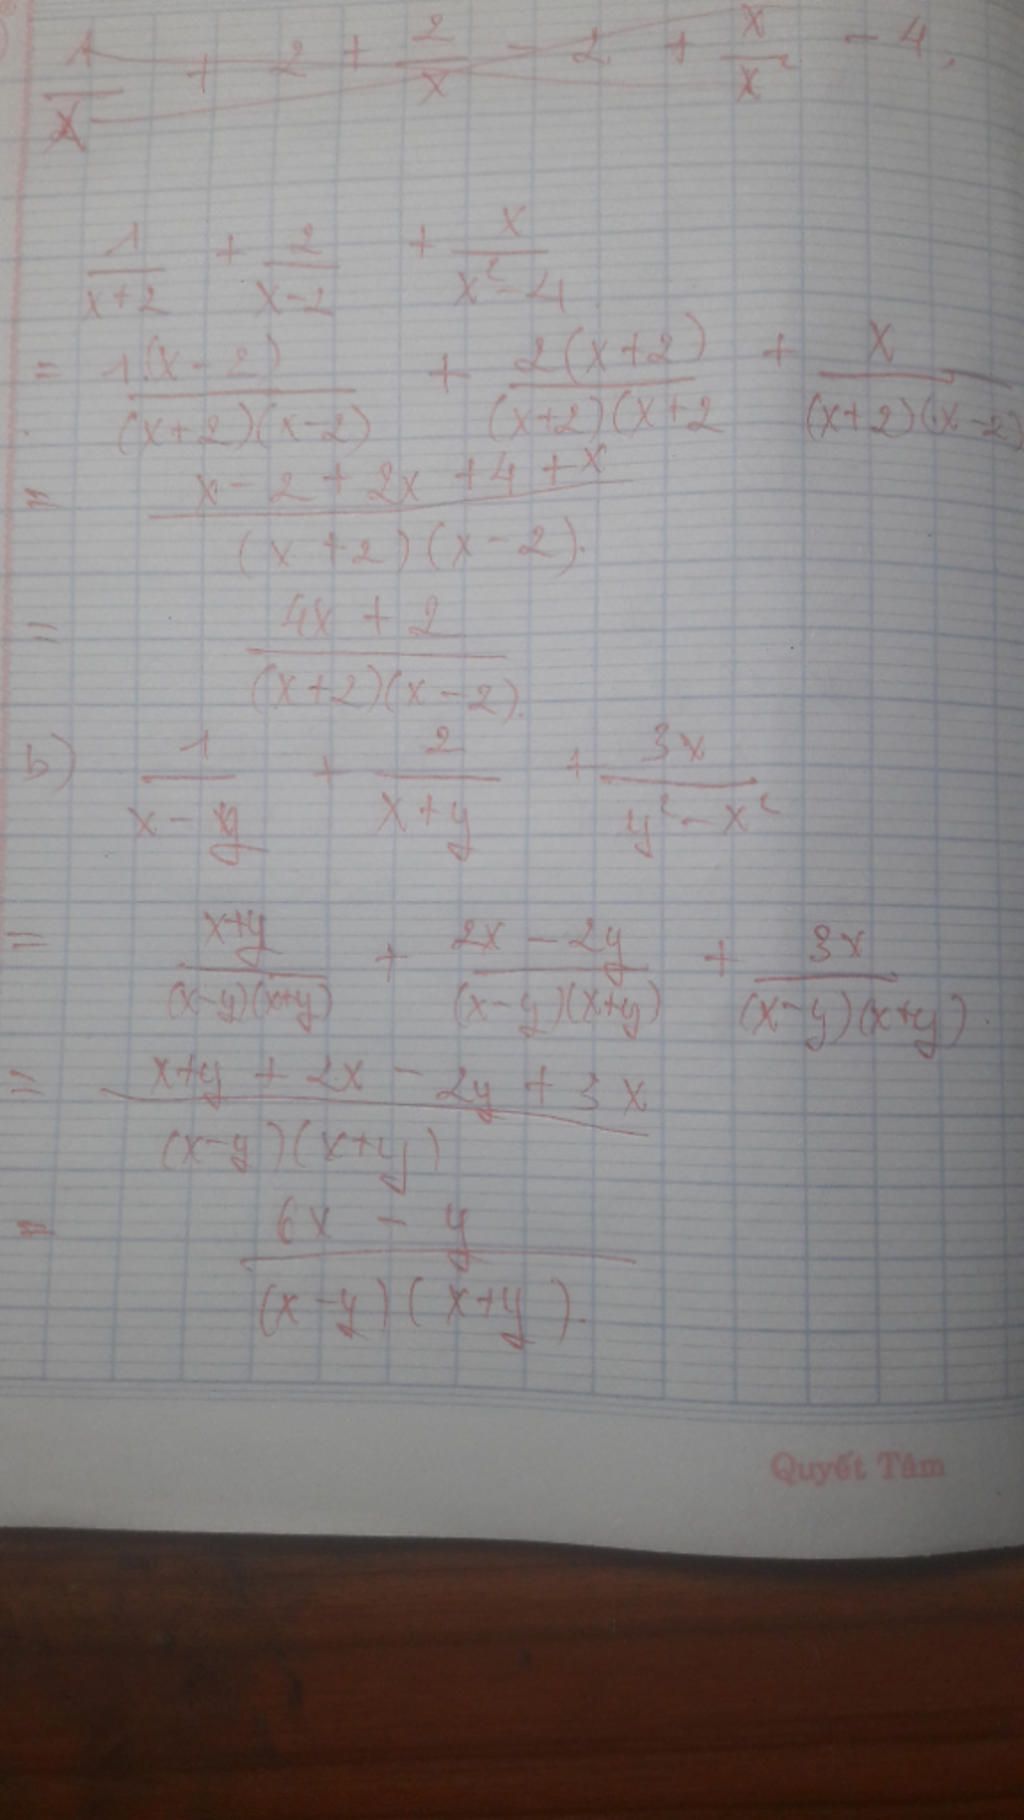 1/x + 2 + 2/x - 2 + x/x² - 4
1/(x+2) + 2/(x-2) + x/(x²-4)
= 1.(x-2)/(x+2)(x-2) + 2(x+2)/(x+2)(x+2 + x/(x+2)(x-2)
= x-2+2x+4+x/(x+2)(x-2).
= 4x+2/(x+2)(x-2).
b) 1/(x-y) + 2/(x+y) + 3x/(y²-x²)
= x+y/(x-y)(x+y) + 2x-2y/(x-y)(x+y) + 3x/(x-y)(x+y).
= x+y+2x-2y+3x/(x-y)(x+y)
= 6x-y/(x-y)(x+y).
Quyết Tâm